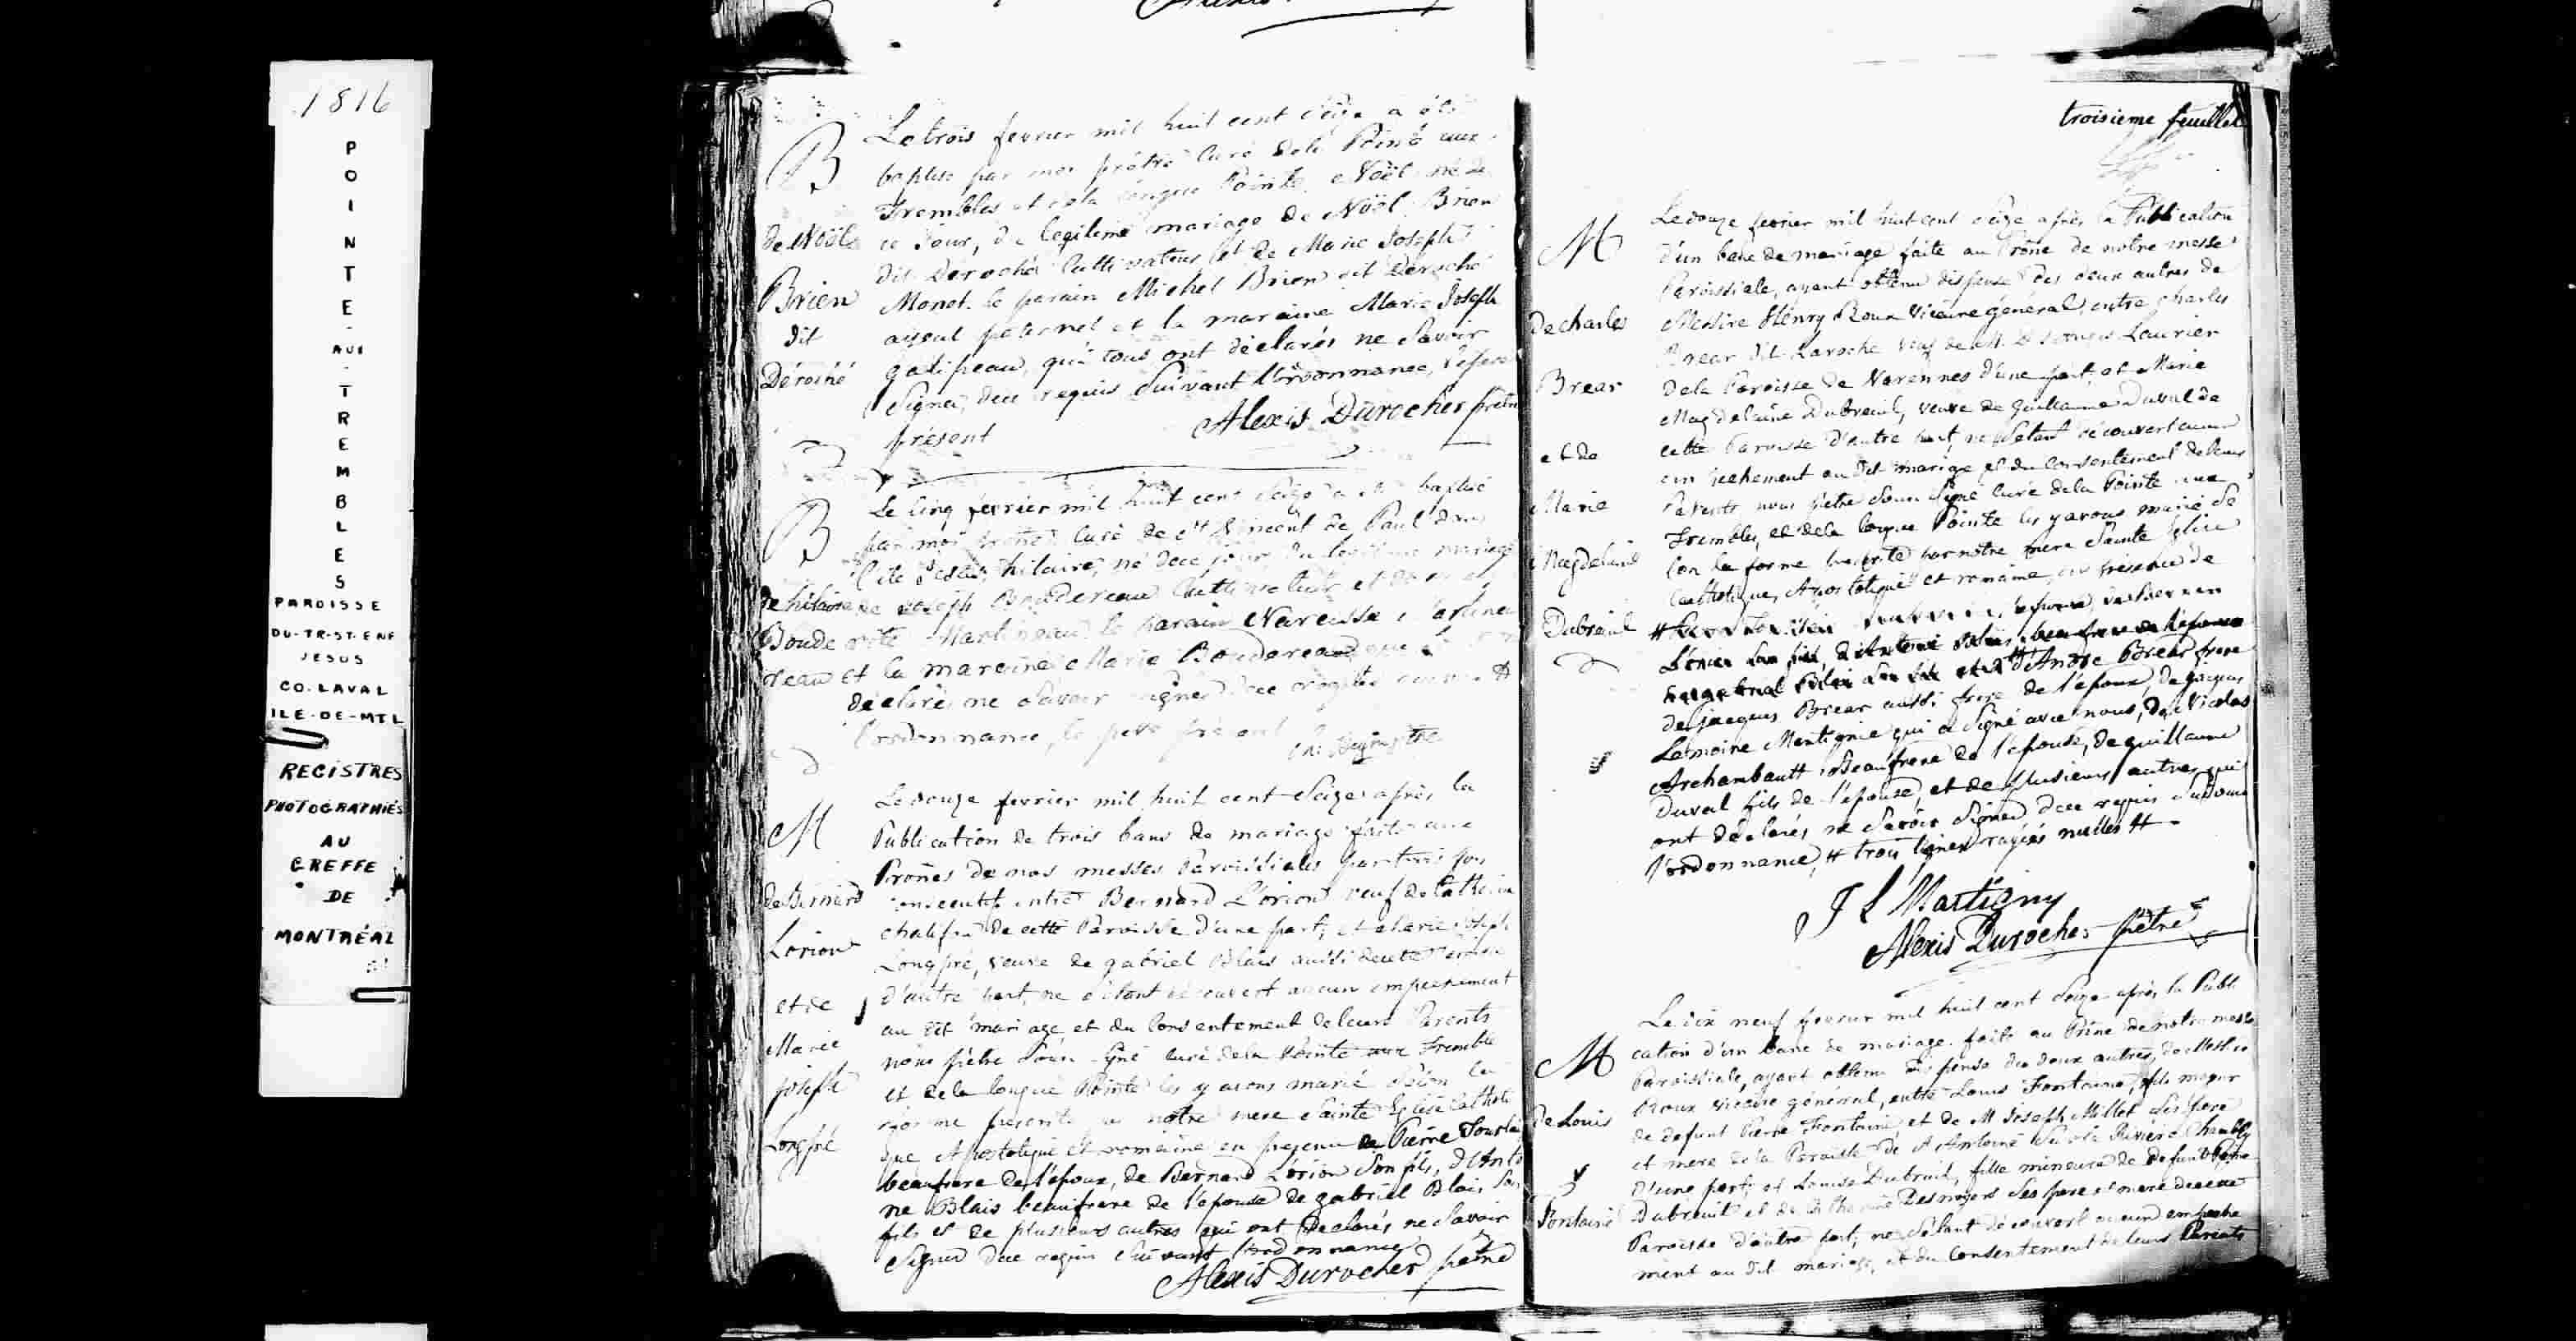 1816
POINTE-AUX-TREMBLES
PAROISSE
DU-TR-ST-ENF
JESUS
CO. LAVAL
ILE-DE-MTL
REGISTRES
PHOTOGRAPHIÉS
AU
GREFFE
DE
MONTRÉAL
B
de Noël
Brien
dit
Déroché
Le trois fevrier mil huit cent seize a été
baptisé par moi prêtre curé dela Pointe aux
Trembles et dela longue Pointe Noël né de
ce jour, de legitime mariage de Noël Brien
dit Deroché Cultivateur et de Marie Joseph
Monet. le parain Michel Brien dit Deroché
ayeul paternel et la maraine Marie Joseph
galipeau, qui tous ont déclarés ne Savoir
Signer, dece requis Suivant l'ordonnance, le pere
présent
Alexis Durocher prêtre
B
de hilaire
Boude
reau
Le Cinq fevrier mil huit cent Seize a été baptisé
par moi prêtre Curé de St Vincent de Paul dans
l'ile Jesus, hilaire, né dece jour du legitime mariage
de Joseph Boudereau Cultivateur et de
Martineau le parain Narcisse Martineau
et la maraine Marie Boudereau que
déclaré ne Savoir signer dece requis
l'ordonnance, le pere présent
M
de Bernard
Lorion
et de
Marie
joseph
Longpré
Le douze fevrier mil huit cent Seize après la
Publication de trois bans de mariage faite aux
Prônes de nos messes Paroissiales par trois jours
consecutifs entre Bernard L'orion veuf de Catherine
de cette Paroisse d'une part, et Marie joseph
Longpré, veuve de gabriel Blais aussi decette Paroisse
d'autre part, ne s'étant découvert aucun empechement
au dit mariage et du Consentement de leurs Parents
nous prêtre Sousigné curé dela Pointe aux Tremble
et dela longue Pointe les y avons marié Selon la
forme prescrite par notre mere Sainte Eglise Catholi
que Apostolique et romaine en presence de Pierre
beaufrere de l'époux, de Bernard L'orion Son fils, d'Antoi
ne Blais beaufrere de l'épouse de gabriel Blais Son
fils et de plusieurs autres qui ont Declarés ne Savoir
Signer dece requis Suivant l'ordonnance
Alexis Durocher prêtre
troisieme feuillet
M
De charles
Brear
et de
Marie
Magdelaine
Dubreuil
Le douze fevrier mil huit cent seize après la Publication
d'un banc de mariage faite au Prône de notre messe
Paroissiale, ayant obtenu dispense des deux autres de
Messire Henry Roux Vicaire général, entre charles
Brear dit Laroche veuf de Laurier
Dela Paroisse de Varennes d'une part, et Marie
Magdelaine Dubreuil, veuve de guillaume Duval de
cette Paroisse d'autre part, ne s'étant découvert aucun
empechement au dit mariage et du Consentement de leurs
Parents nous prêtre Sousigné Curé dela Pointe aux
Trembles, et dela longue Pointe les y avons marié Se
lon la forme prescrite par notre mere Sainte Eglise
Catholique, Apostolique et romaine, en présence de
L'orion Son fils, d'Antoine Blais beaufrere de l'épouse
de gabriel Blais Son fils # d'André Brear frere
de jacques Brear aussi frere de l'époux, de jacques
Lemoine Martignie qui a signé avec nous, de Nicolas
Archambault Beaufrere de l'épouse, de guillaume
Duval fils de l'épouse, et de plusieurs autres qui
ont déclarés ne Savoir Signer dece requis Suivant
l'ordonnance, # trois lignes rayées nulles #
J L Martigny
Alexis Durocher prêtre
M
de Louis
Fontaine
Le dix neuf fevrier mil huit cent Seize après la Publi
cation d'un banc de mariage faite au Prône de notre messe
Paroissiale, ayant obtenu dispense des deux autres, de Messire
Roux vicaire général, entre Louis Fontaine, fils majeur
de defunt Pierre Fontaine et de M Joseph Millet Ses pere
et mere dela Paroisse de St Antoine Sur la Riviere Chambly
d'une part, et Louise Dubreuil, fille mineure de defunt Pierre
Dubreuil et de Catherine Desnoyers Ses pere et mere de cette
Paroisse d'autre part, ne s'étant découvert aucun empeche
ment au dit mariage, et du Consentement de leurs Parents